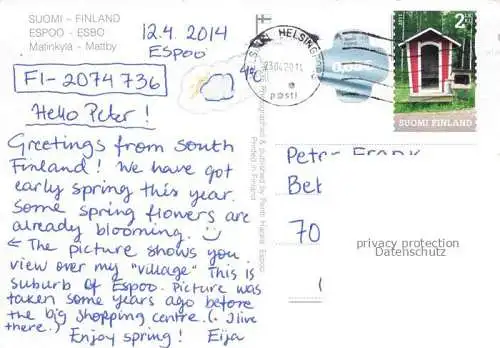 SUOMI - FINLAND
ESPOO - ESBO
Matinkylä - Mattby
12.4.2014
ESPOO
FI-2074736
Hello Peter!
Greetings from south
Finland! We have got
early spring this year.
Some spring flowers are
already blooming.
← The picture shows you
view over my "village". This is
suburb of Espoo. Picture was
taken some years ago before
the big shopping centre. (· I live
there.) Enjoy spring! Eija
4°C
HELSING
posti
Printed in Finland
2011
SUOMI FINLAND
Peter
Bet
70
privacy protection
Datenschutz